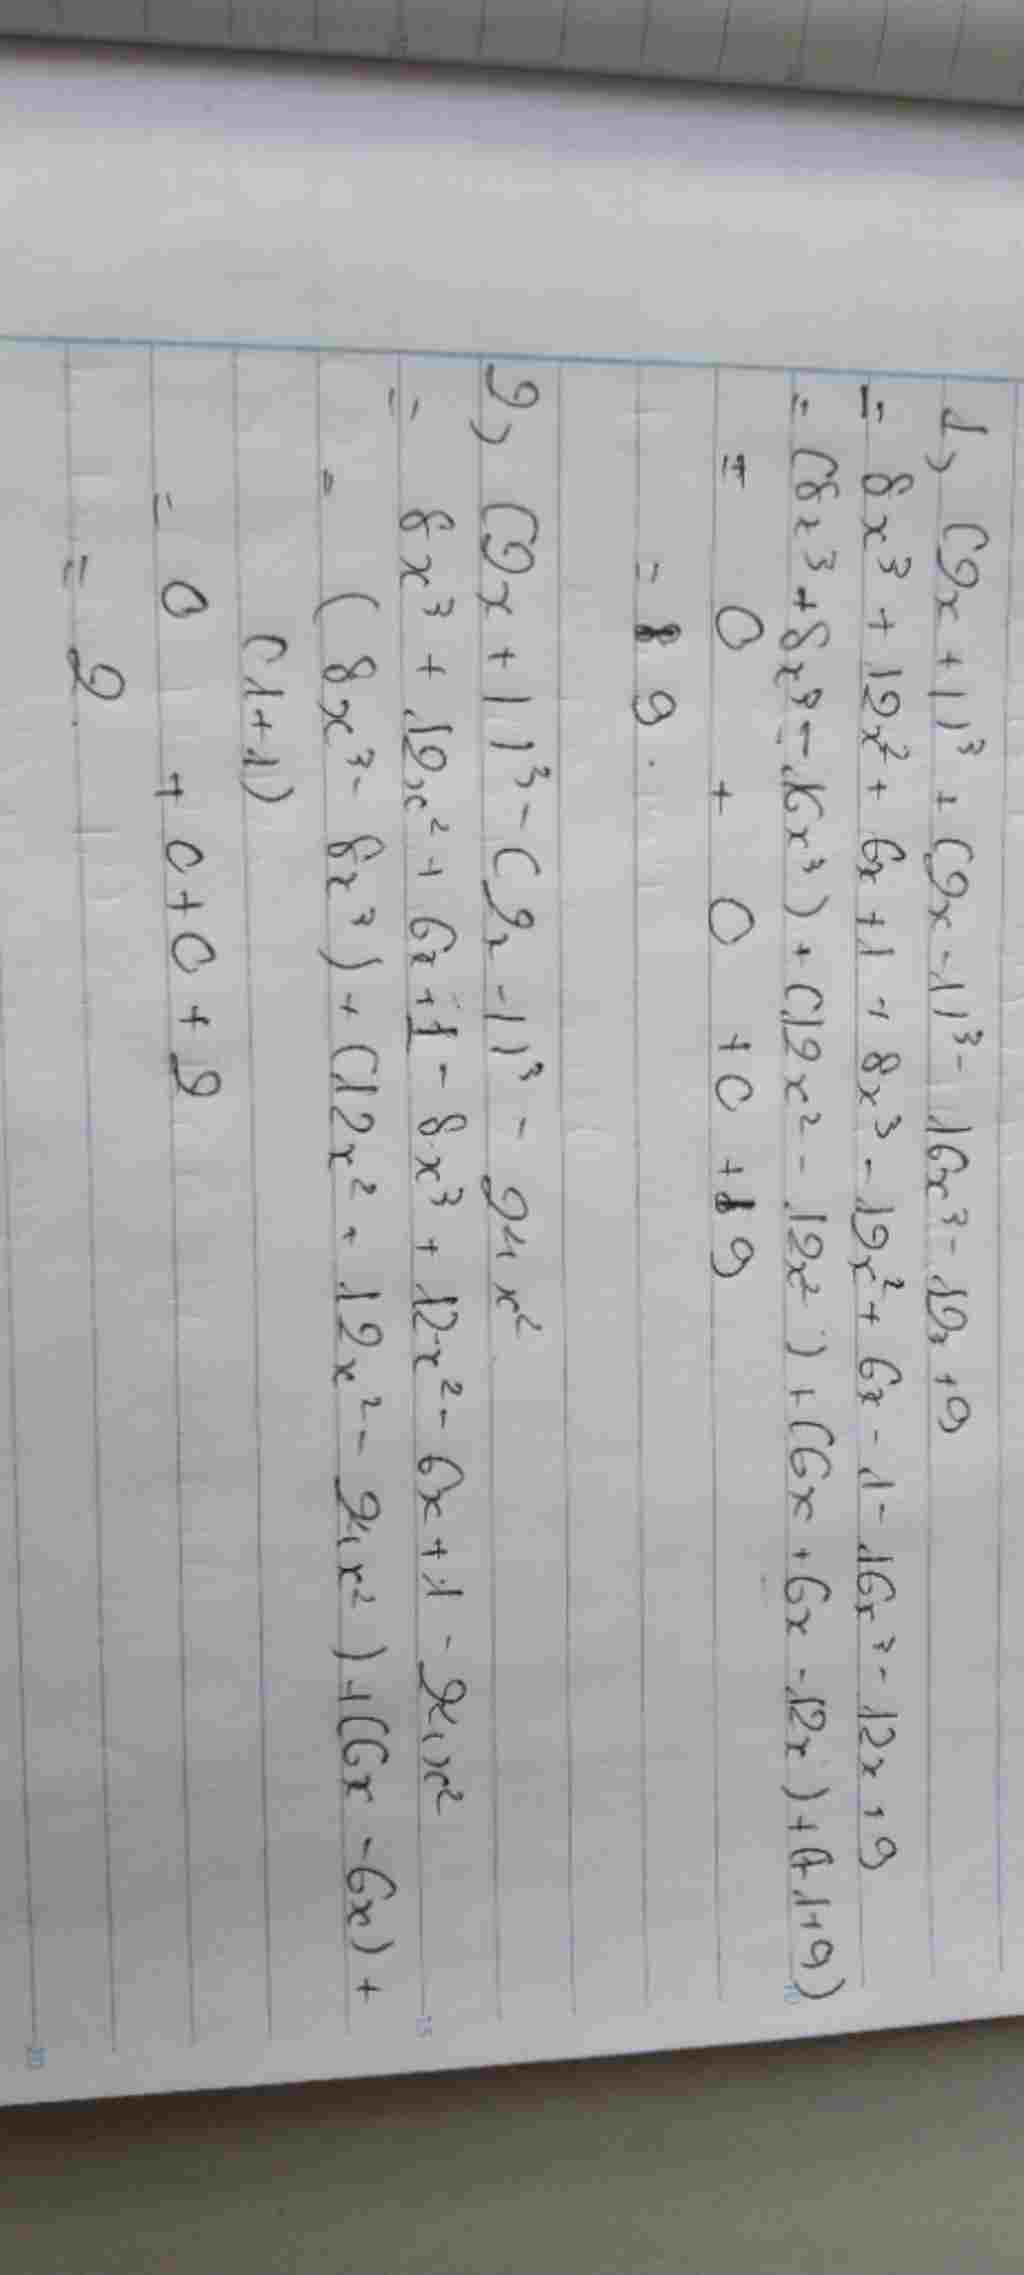 1) (2x + 1)³ + (2x - 1)³ - 16x³ - 12x + 9
= 8x³ + 12x² + 6x + 1 + 8x³ - 12x² + 6x - 1 - 16x³ - 12x + 9
= (8x³ + 8x³ - 16x³) + (12x² - 12x²) + (6x + 6x - 12x) + (1 1 + 9)
10
= 0 + 0 + 0 + 9
= 9.
2) (2x + 1)³ - (2x - 1)³ - 24x²
= 8x³ + 12x² + 6x + 1 - 8x³ + 12x² - 6x + 1 - 24x²
15
= (8x³ - 8x³) + (12x² + 12x² - 24x²) + (6x - 6x) +
(1 + 1)
= 0 + 0 + 0 + 2
= 2.
20